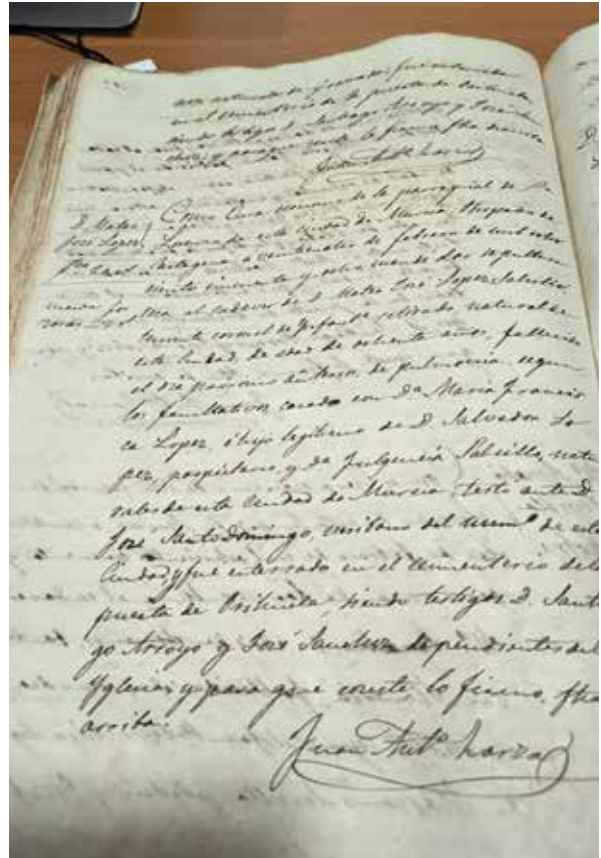 natural de Granada, fue enterrado
en el cementerio de la puerta de Orihuela
siendo testigos D. Santiago Arroyo y José San
chez, y para que conste lo firmo, fha arriba
Juan Antº. Larza
D. Mateo
José Lopez
Como Cura ecónomo de la parroquial de Sn.
Lorenzo de esta Ciudad de Murcia, Obispado de
Cartagena a veintinueve de febrero de mil ocho
cientos cincuenta y ocho mandé dar sepultura
al cadaver de D. Mateo José Lopez Salcillo,
teniente coronel de Infantª. retirado natural de
esta Ciudad, de edad de ochenta años, falleció
el dia de pulmonia, segun
los facultativos, casado con Dª. Maria Francis
ca Lopez, é hijo legitimo de D. Salvador Lo
pez, propietario, y Dª Fulgencia Salcillo, natu
rales de esta Ciudad de Murcia, testó ante D.
José Santo Domingo, escribano del numº. de esta
Ciudad y fue enterrado en el cementerio de la
puerta de Orihuela, siendo testigos D. Santia
go Arroyo y José Sanchez dependientes de la
Yglesia; y para que conste lo firmo, fha
arriba.
Juan Antº. Larza